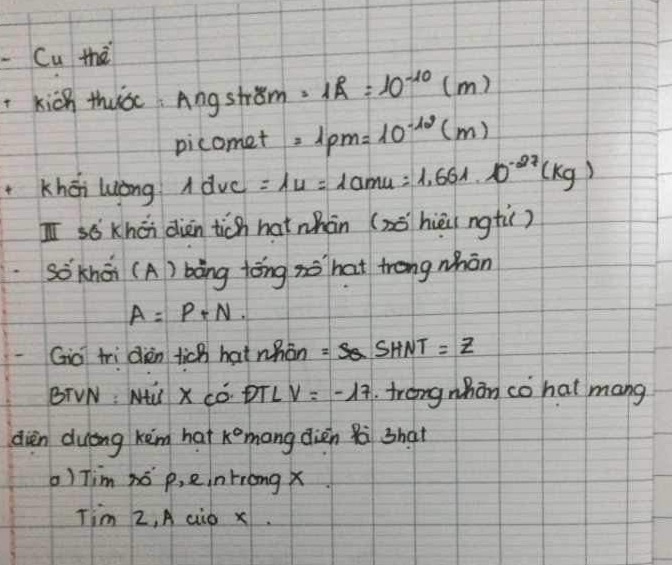 - Cụ thể
+ kích thước : Angström = 1Å = 10⁻¹⁰ (m)
picomet = 1pm = 10⁻¹² (m)
+ khối lượng: 1 đvc = 1u = 1amu = 1,661. 10⁻²⁷ (kg)
III số khối điện tích hạt nhân (số hiệu ngtử)
- Số khối (A) bằng tổng số hạt trong nhân
A = P + N.
- Giá trị điện tích hạt nhân = SHNT = Z
BTVN : Ntử X có ĐTLV = -17. trong nhân có hạt mang
điện dương kém hạt k° mang điện là 3hạt
a) Tìm số p, e, n trong X
Tìm Z, A của x.